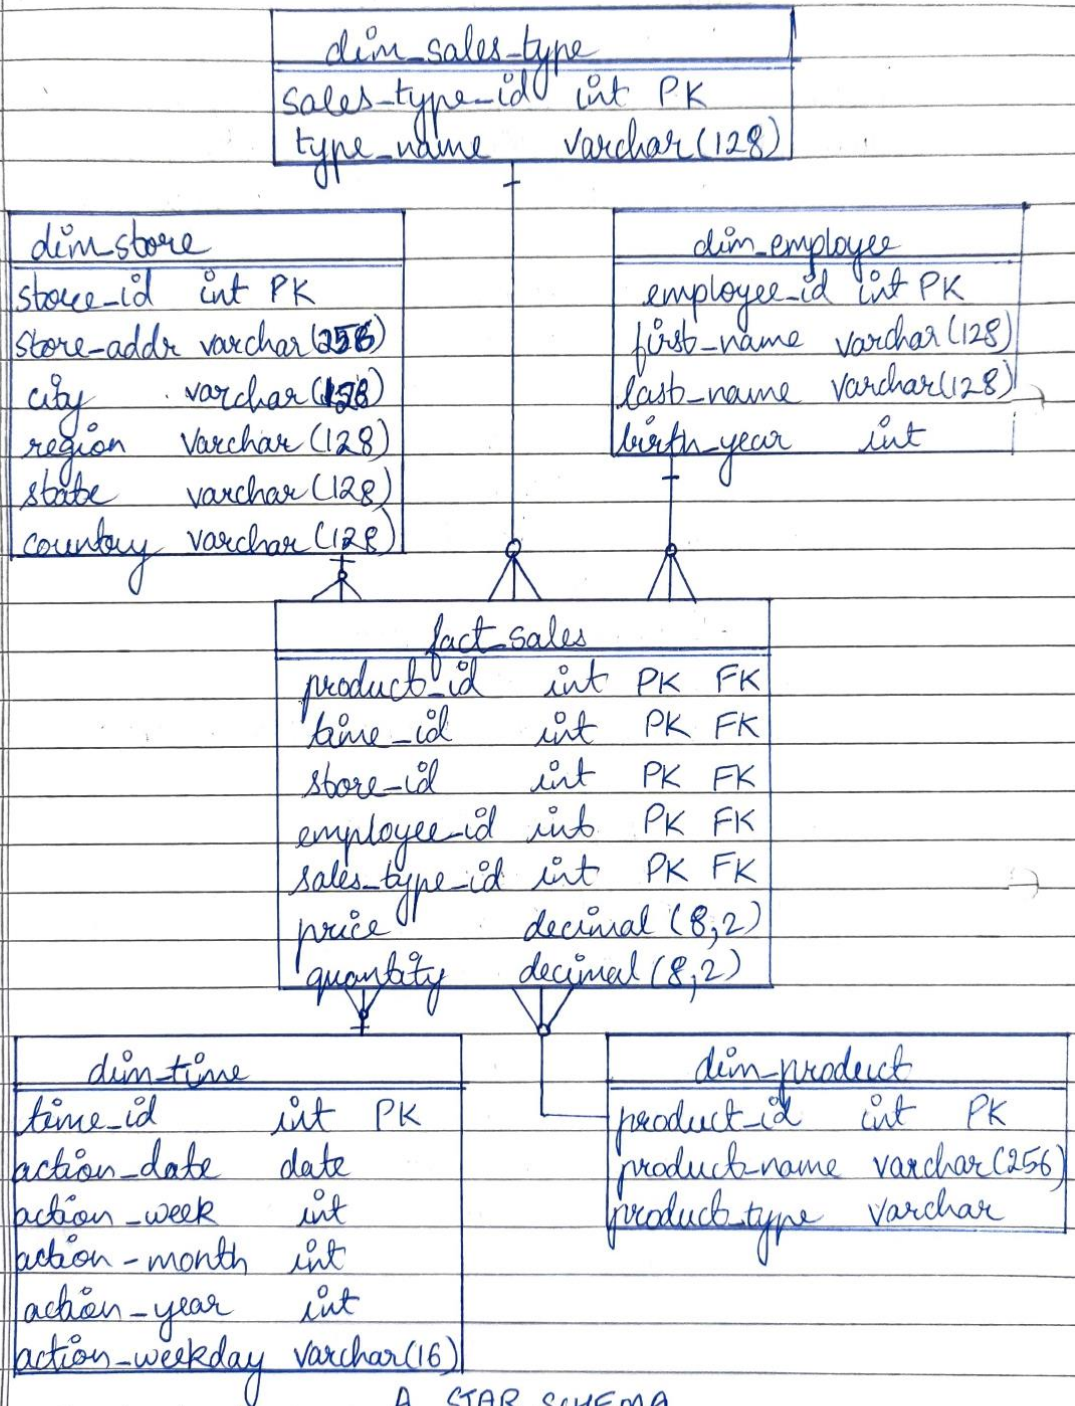 dim_sales_type
sales_type_id int PK
type_name varchar(128)
dim_store
store_id int PK
store_addr varchar(256)
city varchar(128)
region varchar(128)
state varchar(128)
country varchar(128)
dim_employee
employee_id int PK
first_name varchar(128)
last_name varchar(128)
birth_year int
fact_sales
product_id int PK FK
time_id int PK FK
store_id int PK FK
employee_id int PK FK
sales_type_id int PK FK
price decimal (8,2)
quantity decimal (8,2)
dim_time
time_id int PK
action_date date
action_week int
action_month int
action_year int
action_weekday varchar(16)
dim_product
product_id int PK
product_name varchar(256)
product_type varchar
A STAR SCHEMA